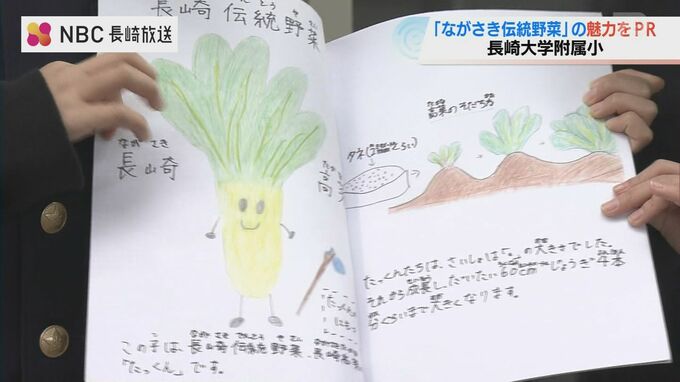 NBC 長崎放送
「ながさき伝統野菜」の魅力をPR
長崎大学附属小
長崎伝統野菜
ながさき
長崎
たかな
高菜のそだち方
タネ
たっくんたちは、さいしょは「。」の大きさでした。
それから成長し、だいたい60cmじょうぎ
分くらいまで大きくなります。
この子は、長崎伝統野菜、
「たっくん」です。